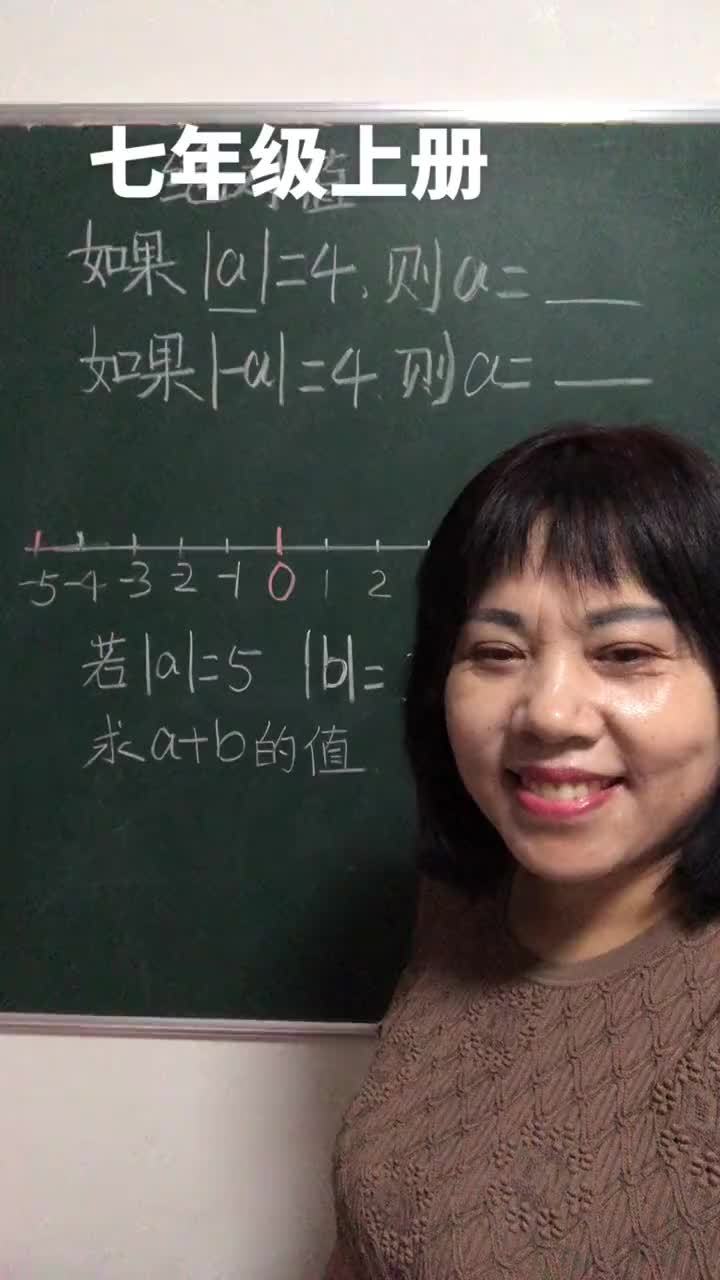 七年级上册
如果|a|=4,则a=___
如果|-a|=4,则a=___
-5 -4 -3 -2 -1 0 1 2
若|a|=5 |b|=
求a+b的值